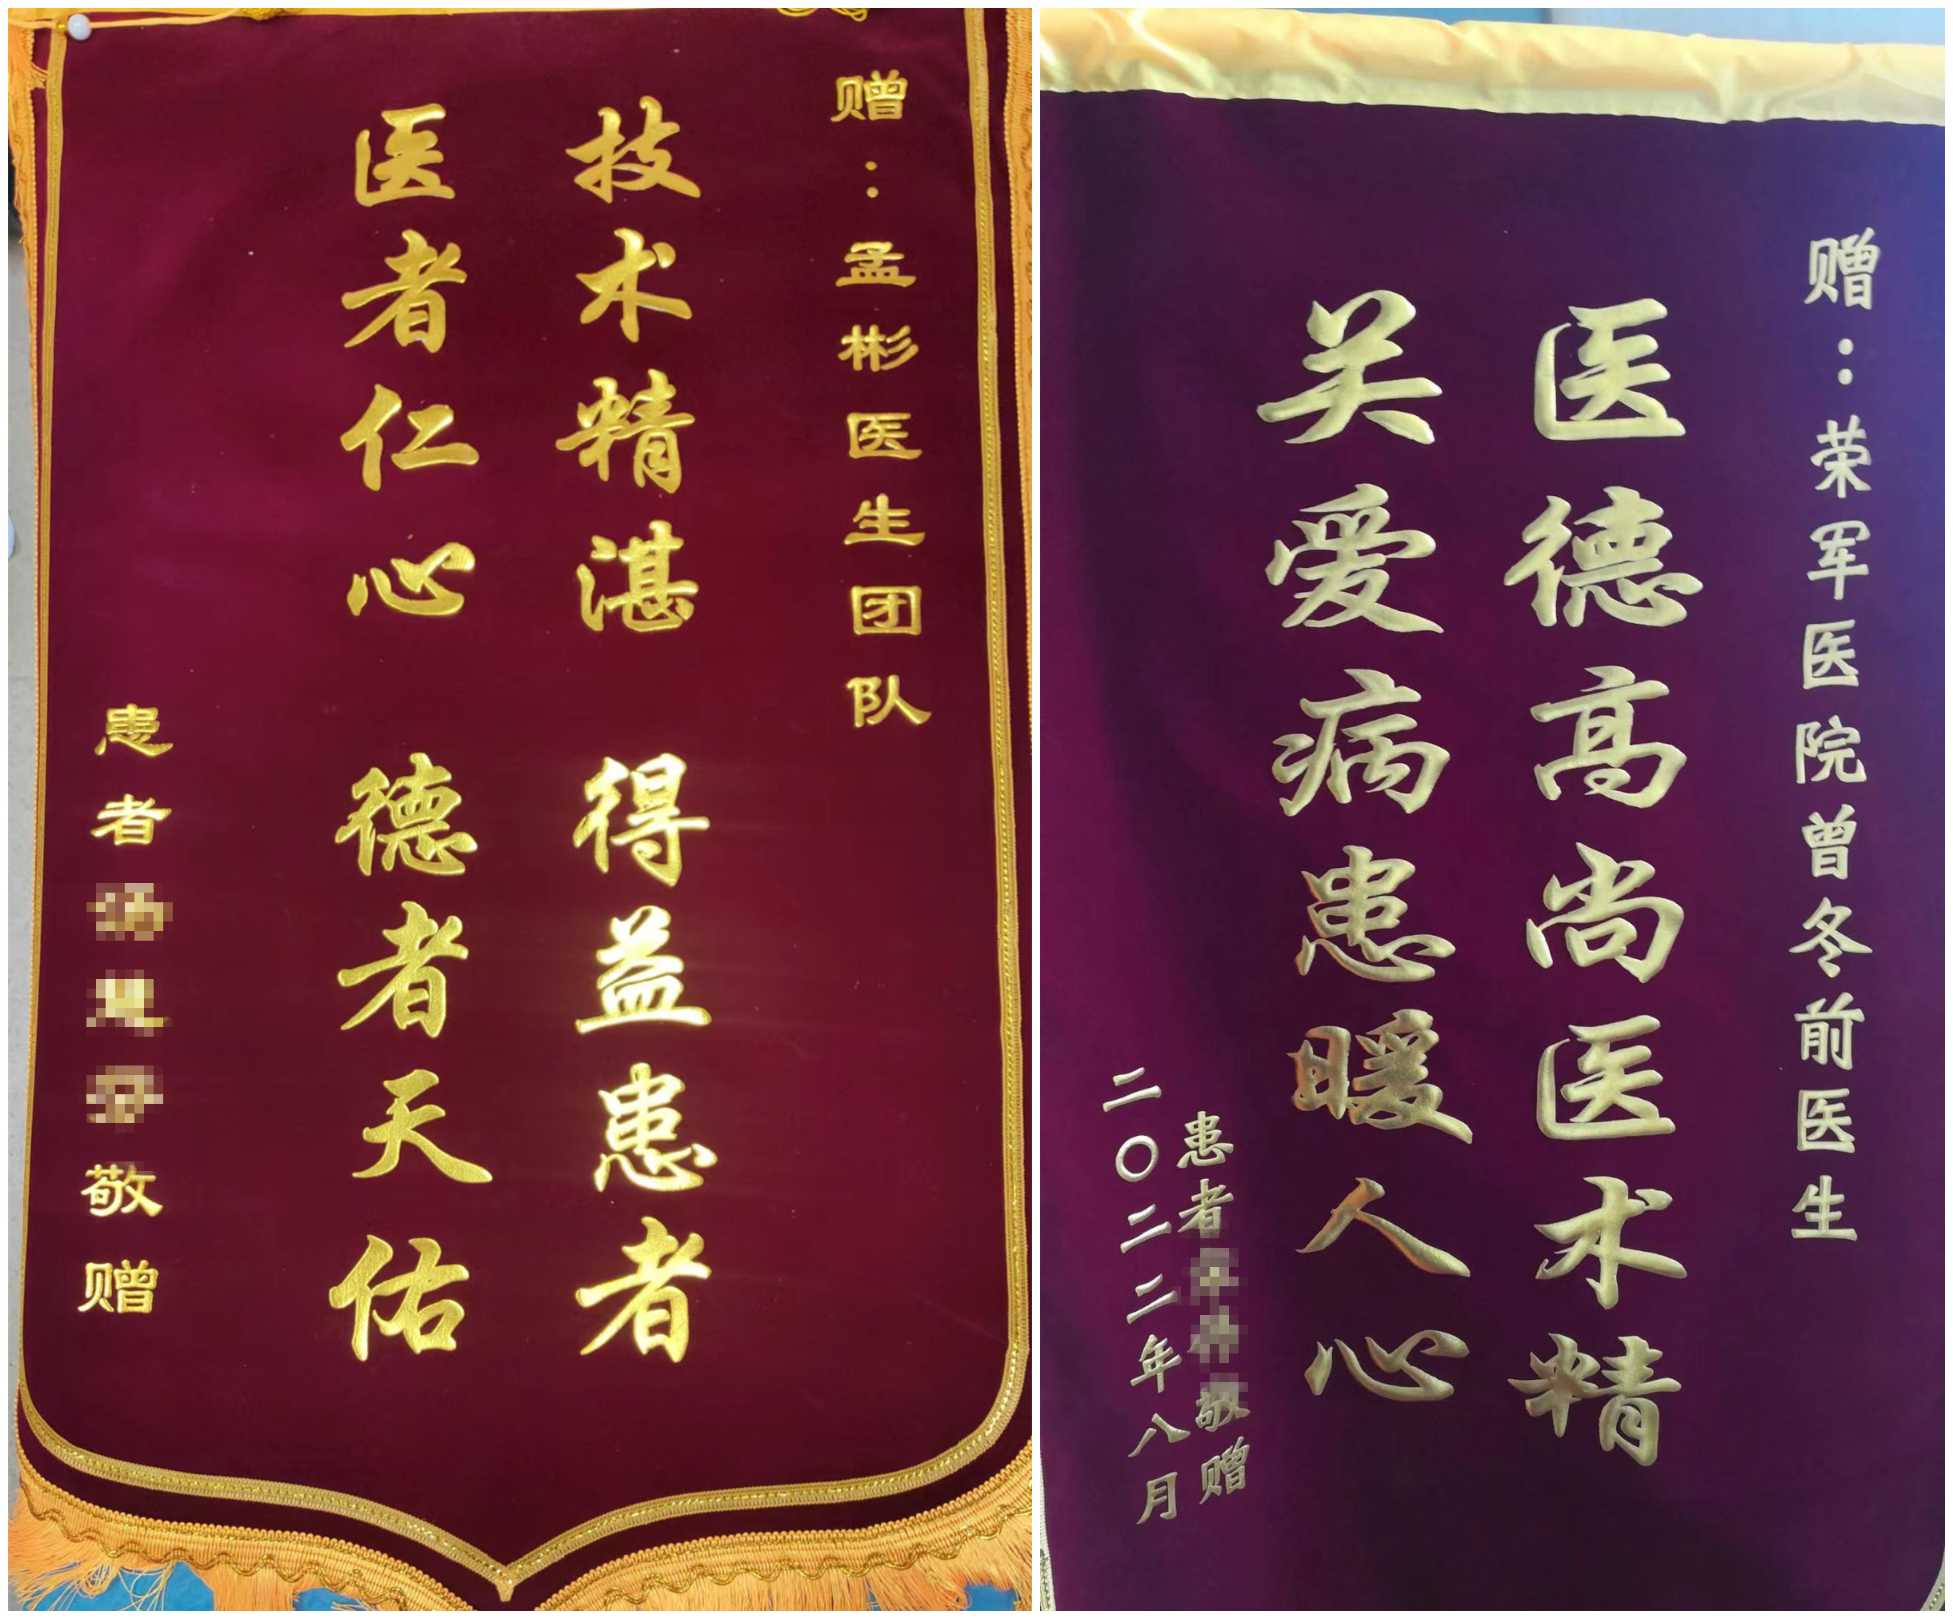 赠：孟彬医生团队
技术精湛 得益患者
医者仁心 德者天佑
患者 敬赠
赠：荣军医院曾冬前医生
医德高尚医术精
关爱病患暖人心
患者 敬赠
二〇二二年八月